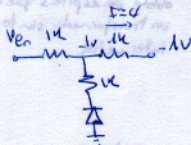 I=0
Ven 1K -1V 1K -1V
1K